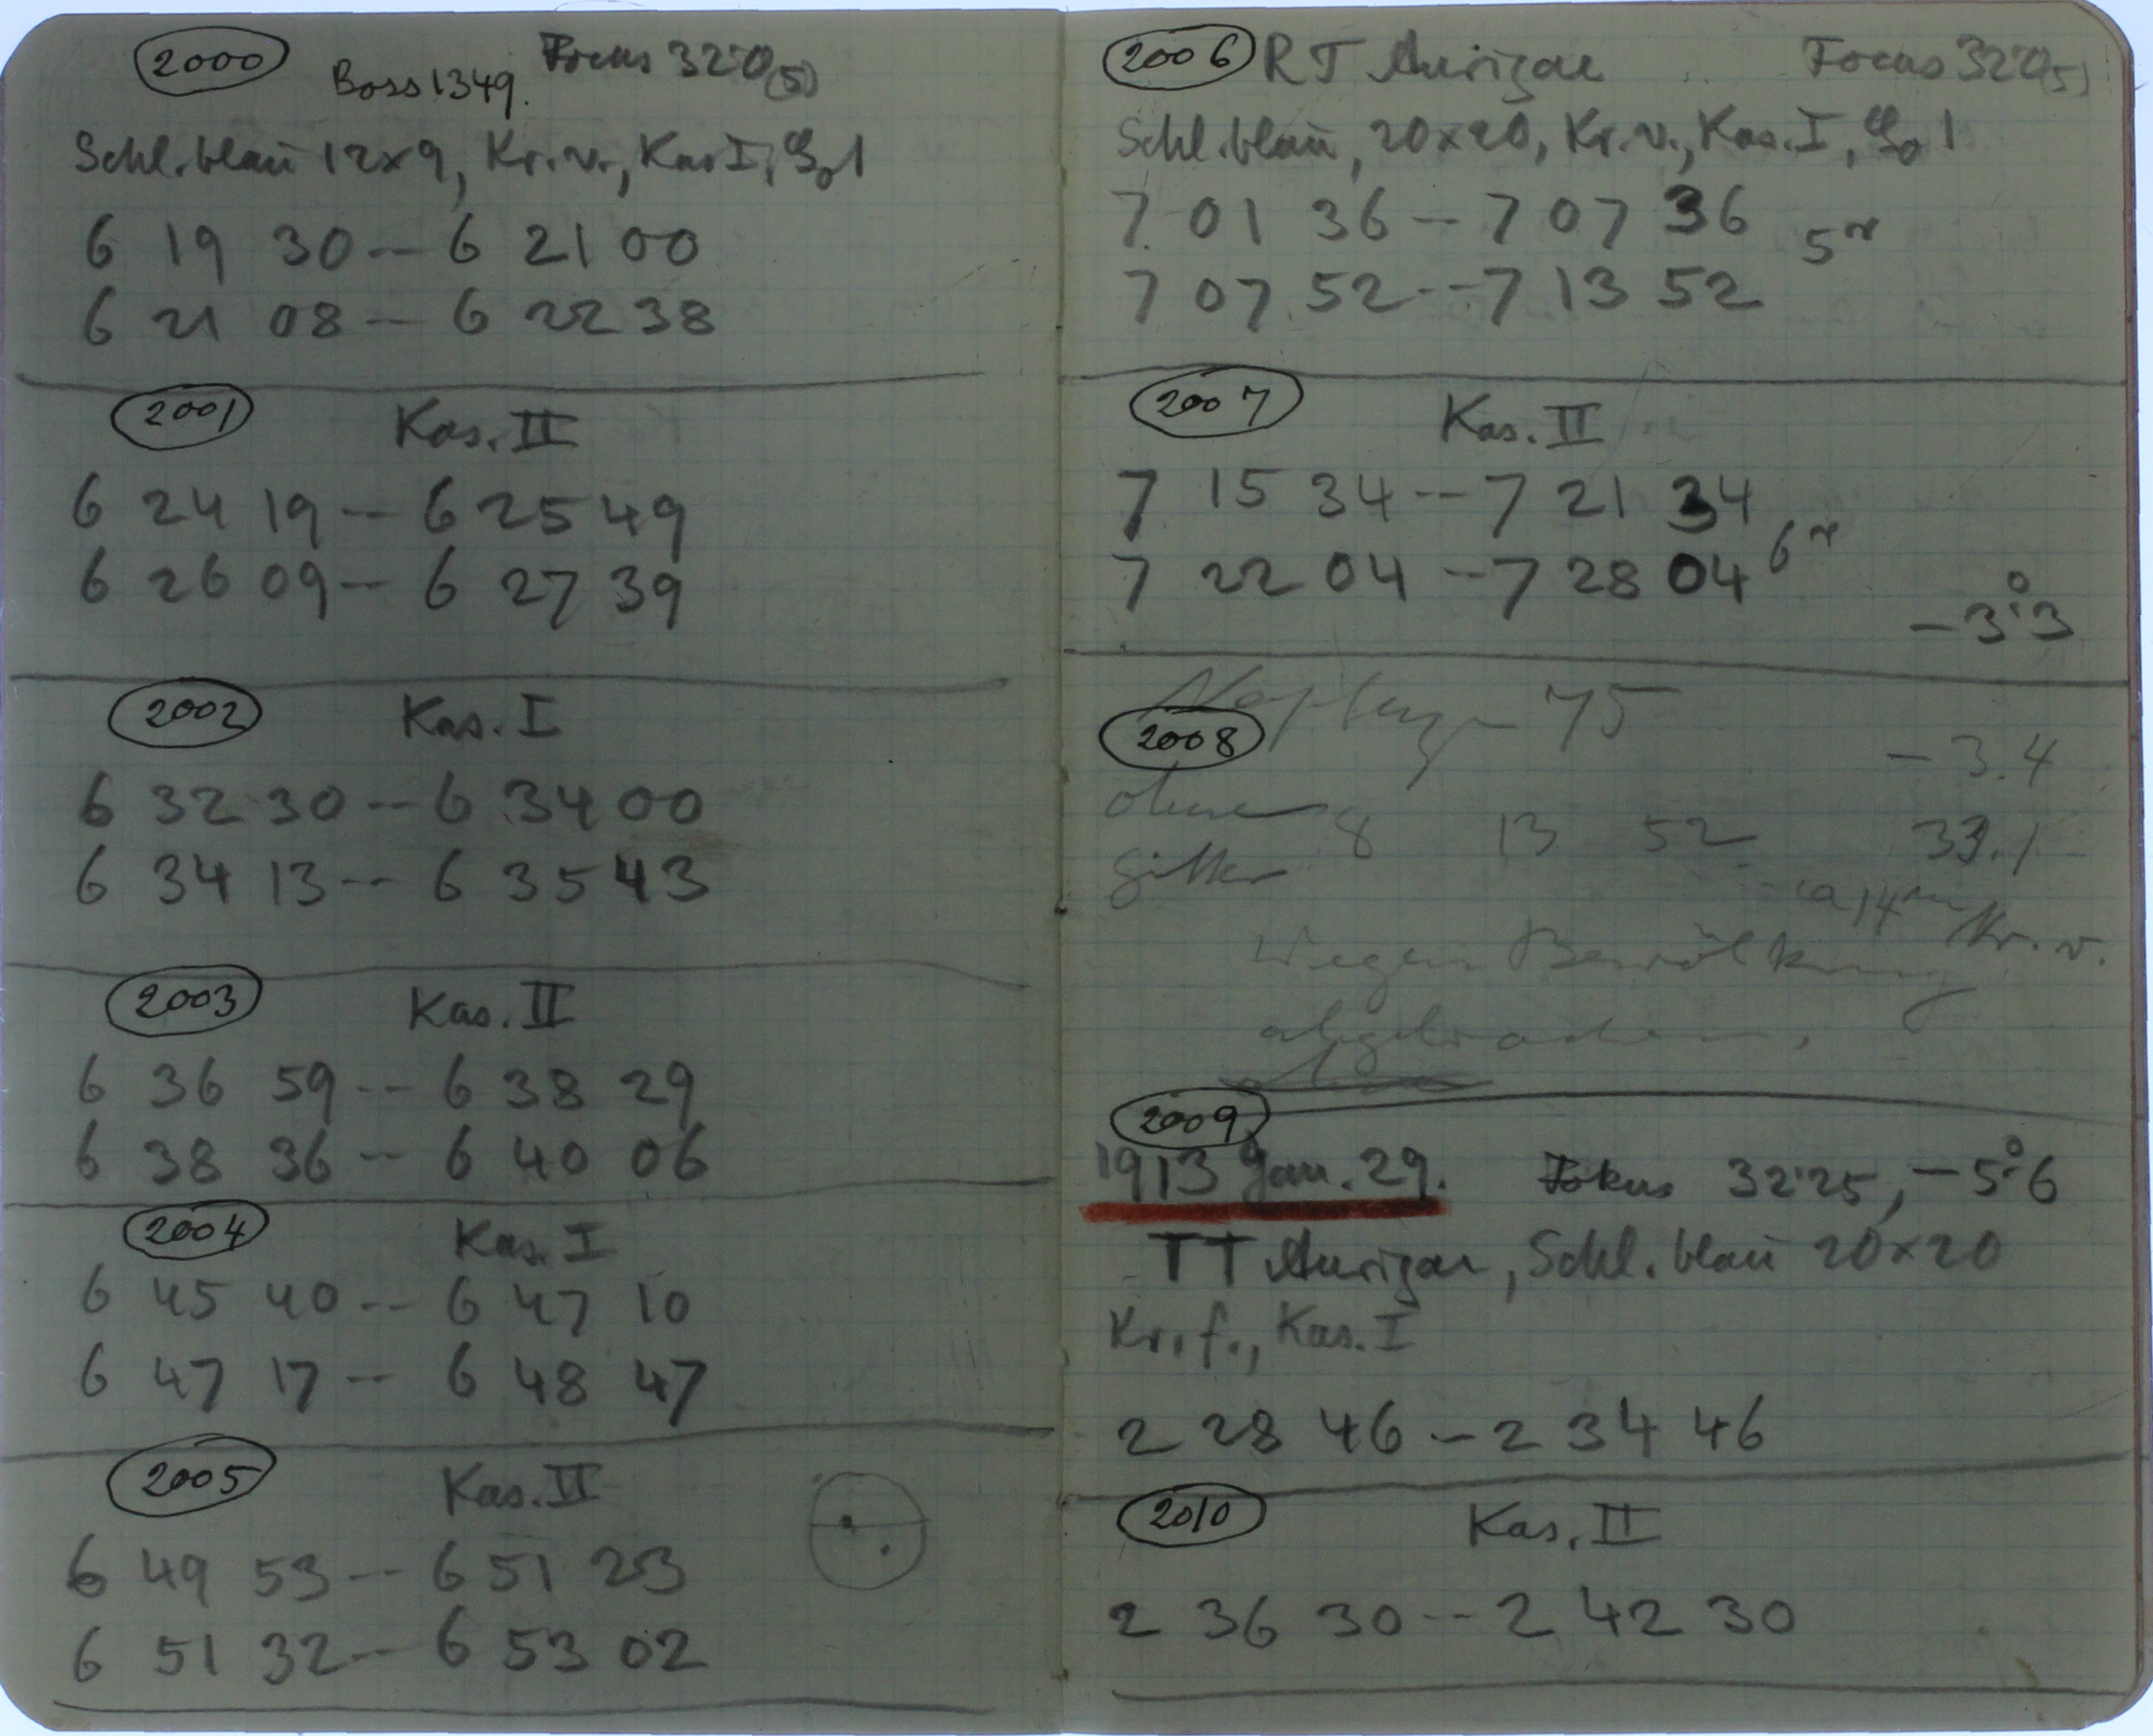 2000 Boss 1349. Focus 32.0(5)
Schl. blau 12x9, Kr. v., Kas I, 1
6 19 30 -- 6 21 00
6 21 08 -- 6 22 38
2001 Kas. II
6 24 19 -- 6 25 49
6 26 09 -- 6 27 39
2002 Kas. I
6 32 30 -- 6 34 00
6 34 13 -- 6 35 43
2003 Kas. II
6 36 59 -- 6 38 29
6 38 36 -- 6 40 06
2004 Kas. I
6 45 40 -- 6 47 10
6 47 17 -- 6 48 47
2005 Kas. II
6 49 53 -- 6 51 23
6 51 32 -- 6 53 02
2006 RT Aurigae Focus 32.0(5)
Schl. blau, 20x20, Kr. v., Kas. I, 1
7 01 36 -- 7 07 36
5m
7 07 52 -- 7 13 52
2007 Kas. II
7 15 34 -- 7 21 34
6m
7 22 04 -- 7 28 04
-3°.3
75
2008 -3.4
ohne 8 13 52 33.1
Gitter
ca 14m Kr. v.
wegen Bewölkung
abgebrochen.
2009
1913 Jan. 29. Fokus 32.25, -5°.6
TT Aurigae, Schl. blau 20x20
Kr. f., Kas. I
2 28 46 -- 2 34 46
2010 Kas. II
2 36 30 -- 2 42 30